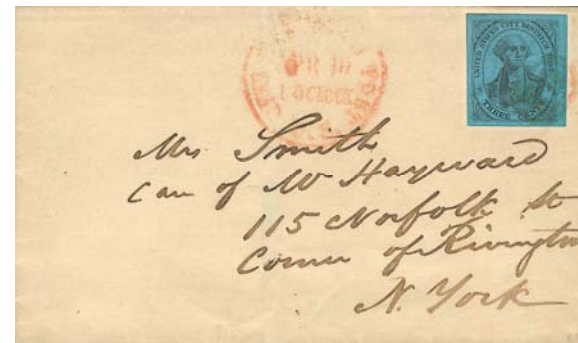 UNITED STATES CITY DESPATCH POST
THREE CENTS
Mrs Smith
Care of Mr Hayward
115 Norfolk St
Corner of Rivington
N. York